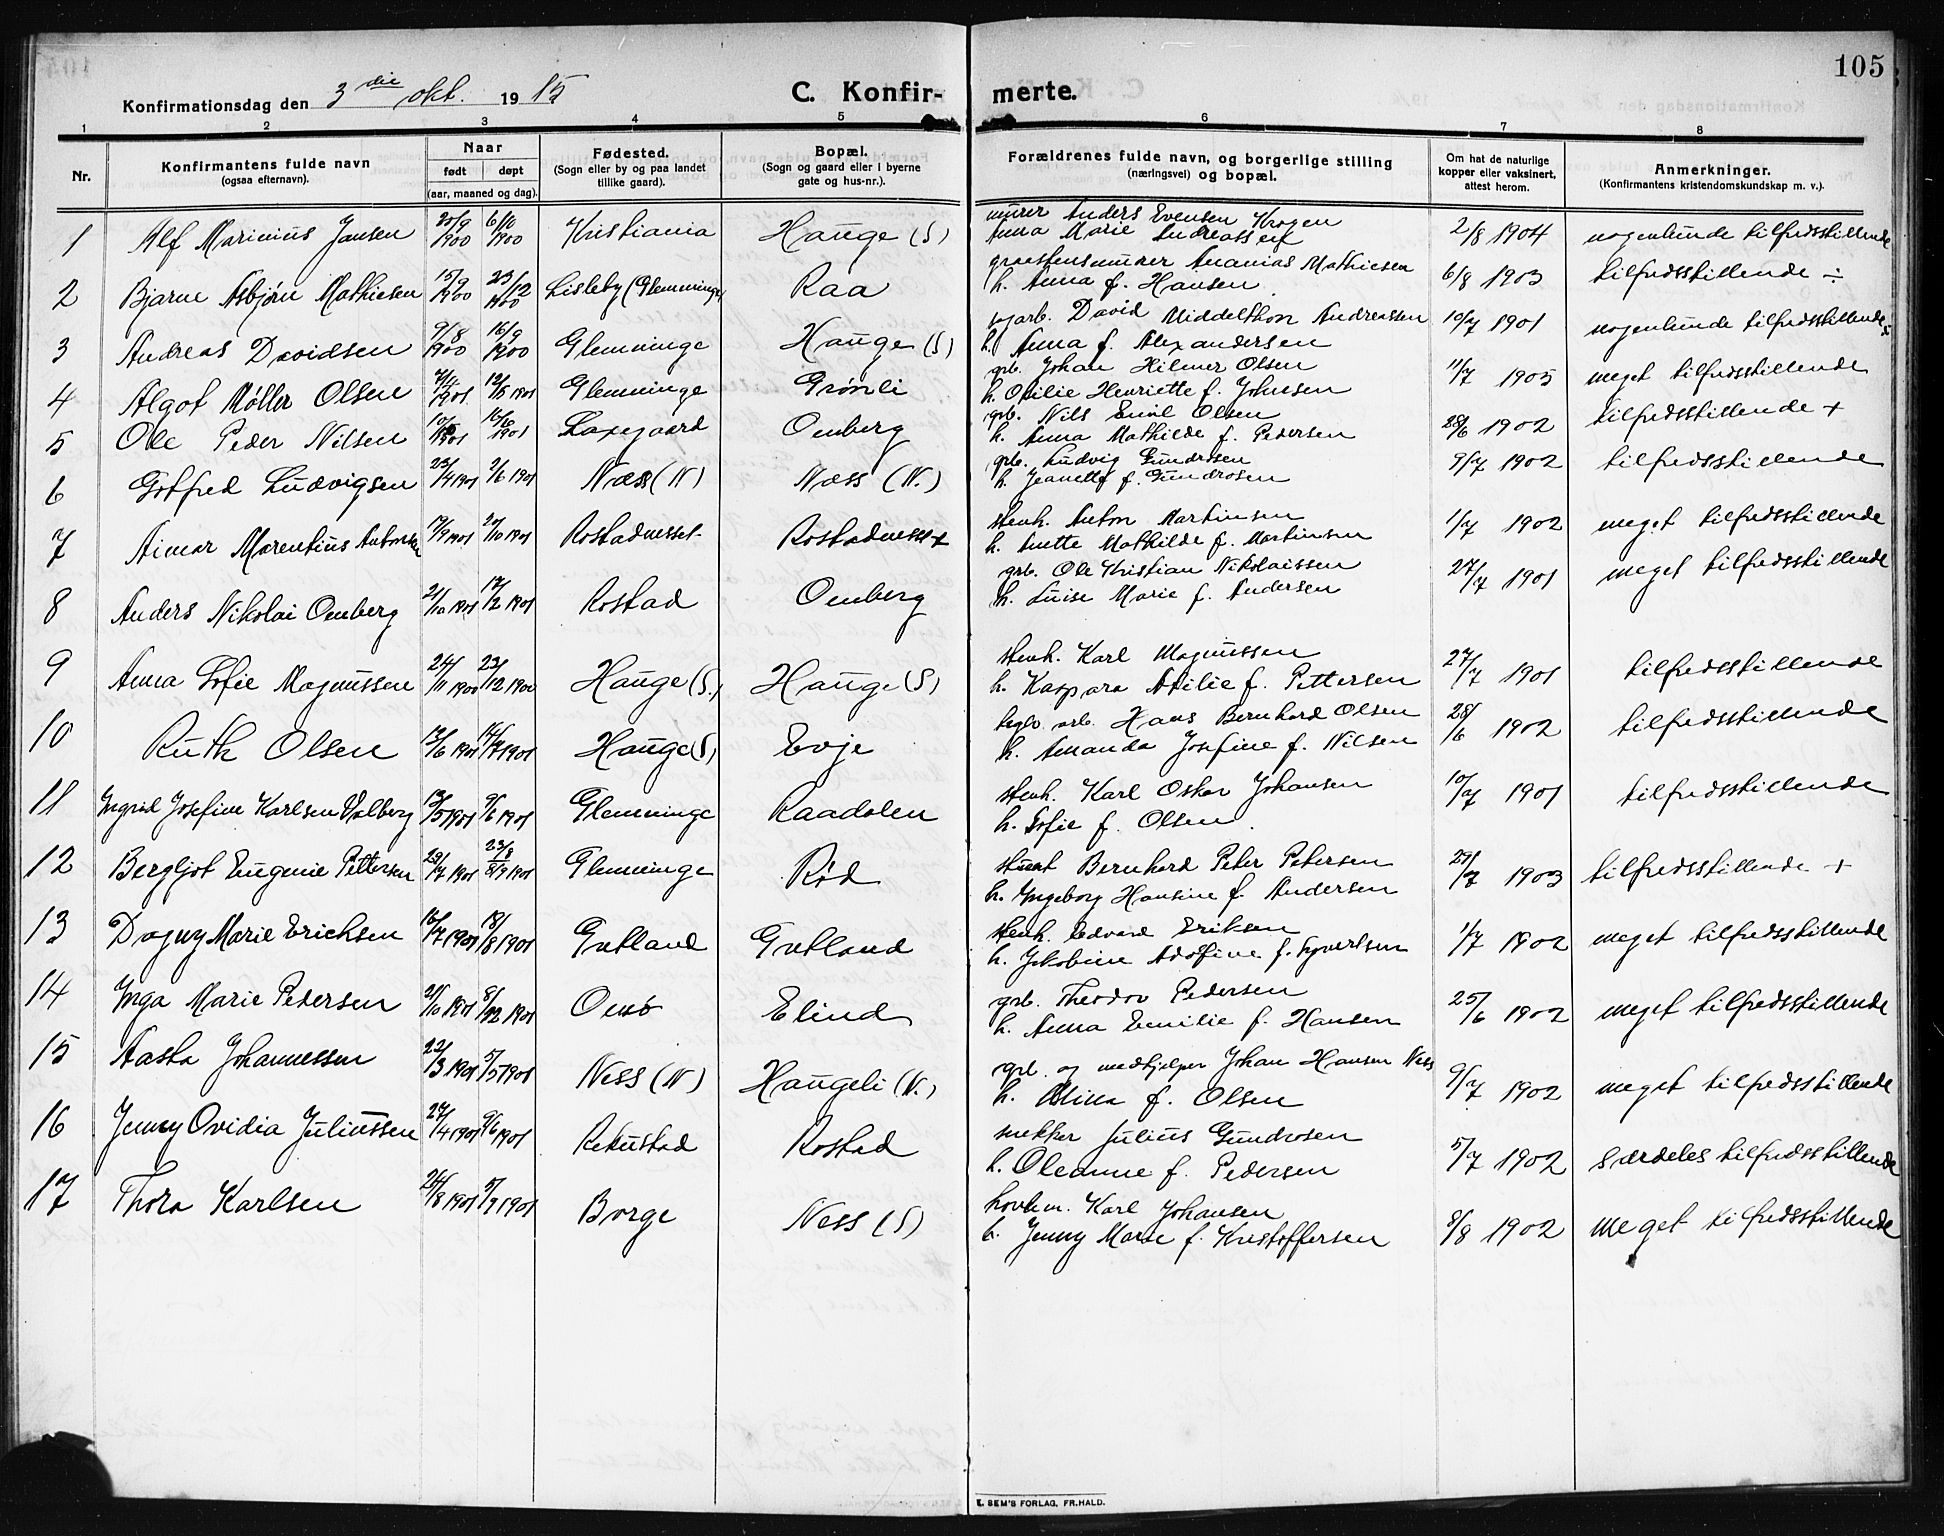 105
Konfirmationsdag den 3die okt. 1915
C. Konfir- merte.
1 2 3 4 5 6 7 8
Nr.
Konfirmantens fulde navn
(ogsaa efternavn).
Naar
født døpt
(aar, maaned og dag).
Fødested.
(Sogn eller by og paa landet
tillike gaard).
Bopæl.
(Sogn og gaard eller i byerne
gate og hus-nr.).
Forældrenes fulde navn, og borgerlige stilling
(næringsvei) og bopæl.
Om hat de naturlige
kopper eller vaksinert,
attest herom.
Anmerkninger.
(Konfirmantens kristendomskundskap m. v.).
1 Alf Marinius Jansen 20/9 1900 6/10 1900 Kristiania Hauge (S) murer Anders Evensen Krogen 2/8 1904 nogenlunde tilfredsstillende
Anna Marie Andreassen
2 Bjarne Asbjørn Mathiesen 15/9 1900 23/12 1900 Lisleby (Glemminge) Raa graastensmurer Ananias Mathiesen 6/8 1903 tilfredsstillende ÷
h. Anna f. Hansen
3 Andreas Davidsen 9/8 1900 16/9 1900 Glemminge Hauge (S) David Middelthon Andreassen 10/7 1901 nogenlunde tilfredsstillende
h. Anna f. Alexandersen
4 Algot Møller Olsen 4/4 1901 12/5 1901 Glemminge Grønli grb. Johan Hilmer Olsen 11/7 1905 meget tilfredsstillende
h. Otilie Henriette f. Johnsen
5 Ole Peder Nilsen 1901 16/6 1901 Laxegaard Omberg grb. Nils Emil Olsen 28/6 1902 tilfredsstillende +
h. Anna Mathilde f. Pedersen
6 Gotfred Ludvigsen 23/4 1901 2/6 1901 Næss (N) Næss (N.) grb. Ludvig Gundrosen 9/7 1902 tilfredsstillende
h. Jeanette f. Gundrosen
7 Aimar Marentius Antonsen 17/9 1901 27/10 1901 Rostadnesset Rostadnesset stenh. Anton Martinsen 1/7 1902 meget tilfredsstillende
h. Anette Mathilde f. Martinsen
8 Anders Nikolai Omberg 21/10 1901 17/12 1901 Rostad Omberg grb. Ole Kristian Nikolaissen 27/7 1901 meget tilfredsstillende
h. Luise Marie f. Andersen
9 Anna Sofie Magnussen 24/11 1900 23/12 1900 Hauge (S.) Hauge (S) stenh. Karl Magnussen 27/7 1901 tilfredsstillende
h. Kaspara Otilie f. Pettersen
10 Ruth Olsen 12/6 1901 14/7 1901 Hauge (S) Evje teglv. arb. Hans Bernhard Olsen 28/6 1902 tilfredsstillende
h. Amanda Josefine f. Nilsen
11 Ingrid Josefine Karlsen Valberg 13/5 1901 9/6 1901 Glemminge Raadalen stenh. Karl Oskar Johansen 10/7 1901 tilfredsstillende
h. Sofie f. Olsen
12 Bergljot Eugenie Pettersen 23/7 1901 23/8 8/9 1901 Glemminge Rød Bernhard Peter Petersen 29/7 1903 tilfredsstillende +
h. Ingeborg Hansine f. Andersen
13 Dagny Marie Erichsen 16/7 1901 18/8 1901 Gretland Gretland stenh. Edvard Eriksen 1/7 1902 meget tilfredsstillende
h. Jakobine Adolfine f. Syvertsen
14 Inga Marie Pedersen 21/10 1901 8/12 1901 Onsø Elind grb. Theodor Pedersen 25/6 1902 meget tilfredsstillende
h. Anna Emilie f. Hansen
15 Aasta Johannessen 22/3 1901 5/5 1901 Ness (N) Haugeli (N.) grb. og medhjelper Johan Hansen Ness 9/7 1902 meget tilfredsstillende
h. Mina f. Olsen
16 Jenny Ovidia Juliussen 27/4 1901 9/6 1901 Rekustad Rostad snekker Julius Gundrosen 5/7 1902 særdeles tilfredsstillende
h. Oleanne f. Pedersen
17 Thora Karlsen 24/8 1901 5/9 1901 Borge Ness (S) Karl Johansen 8/8 1902 meget tilfredsstillende
h. Jenny Marie f. Kristoffersen
E. SEM'S FORLAG, FR.HALD.